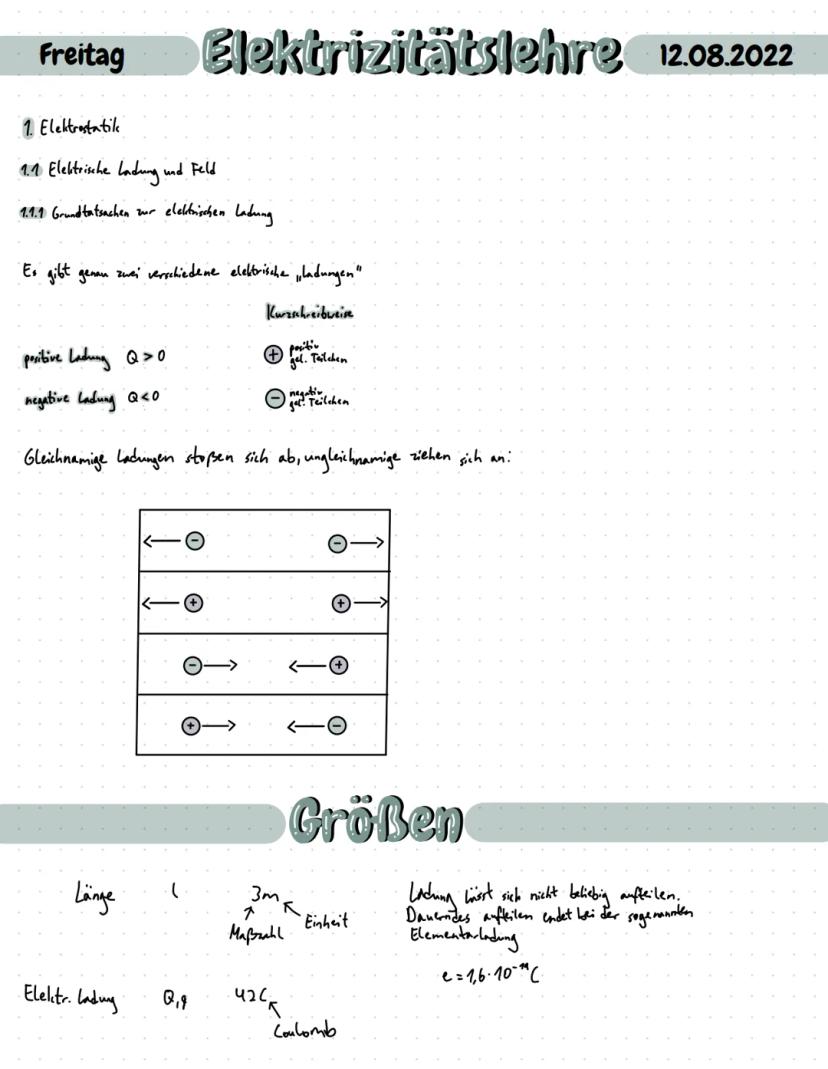 Freitag Elektrizitätslehre 12.08.2022
1. Elektrostatik
1.1 Elektrische Ladung und Feld
1.1.1 Grundtatsachen zur elektrischen Ladung
Es gibt genau zwei verschiedene elektrische „Ladungen"
Kurzschreibweise
positive Ladung Q > 0 + positiv
gel. Teilchen
negative Ladung Q < 0 - negativ
gel. Teilchen
Gleichnamige Ladungen stoßen sich ab, ungleichnamige ziehen sich an:
- -
+ +
- +
+ -
Größen
Länge l 3m
Maßzahl Einheit
Ladung lässt sich nicht beliebig aufteilen.
Dauerndes aufteilen endet bei der sogenannten
Elementarladung
e = 1,6 · 10⁻¹⁹ C
Elektr. Ladung Q, q 42C
Coulomb